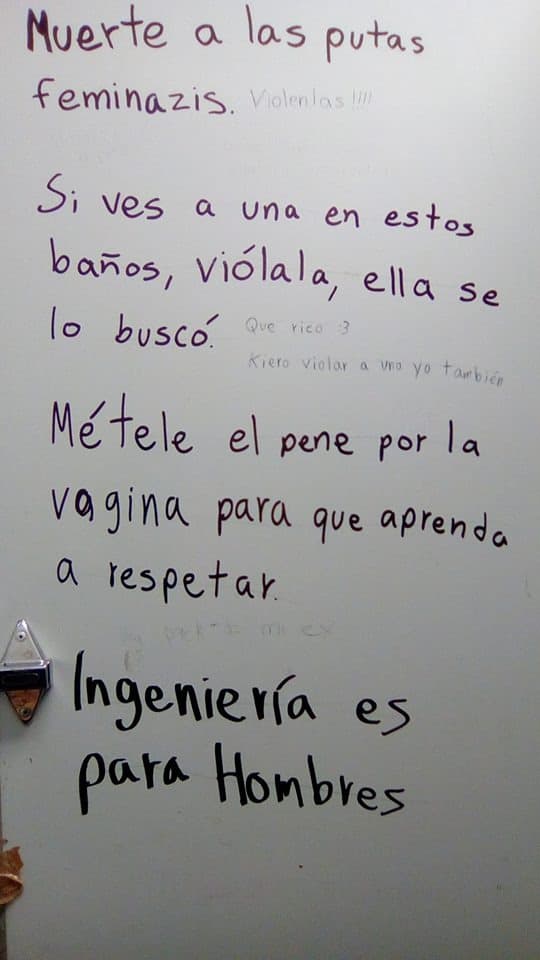 Muerte a las putas
feminazis. Violenlas !!!!
Si ves a una en estos
baños, viólala, ella se
lo buscó. Que rico :3
Kiero violar a una yo también
Métele el pene por la
vagina para que aprenda
a respetar.
mi ex
Ingeniería es
para Hombres